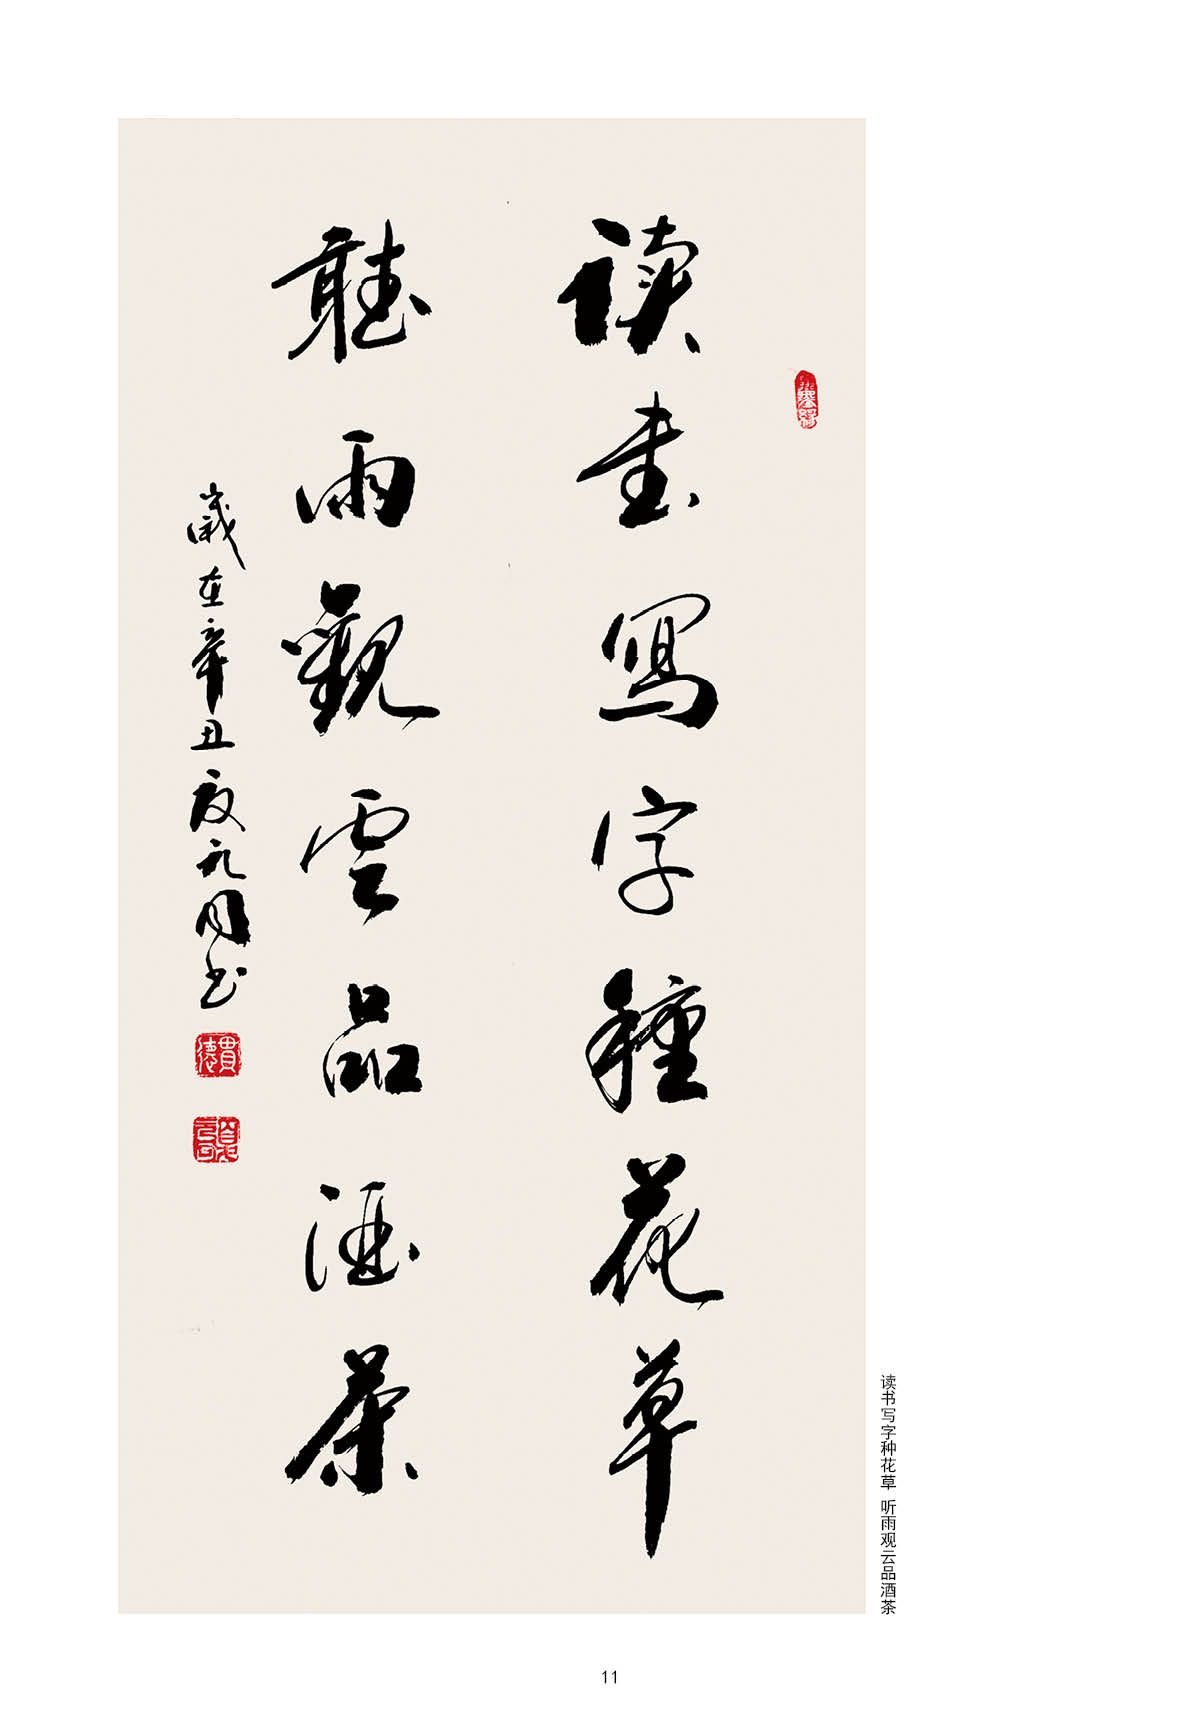 读书寫字種花草
聽雨觀雲品酒茶
歲在辛丑夏九同书
读书写字种花草 听雨观云品酒茶
11